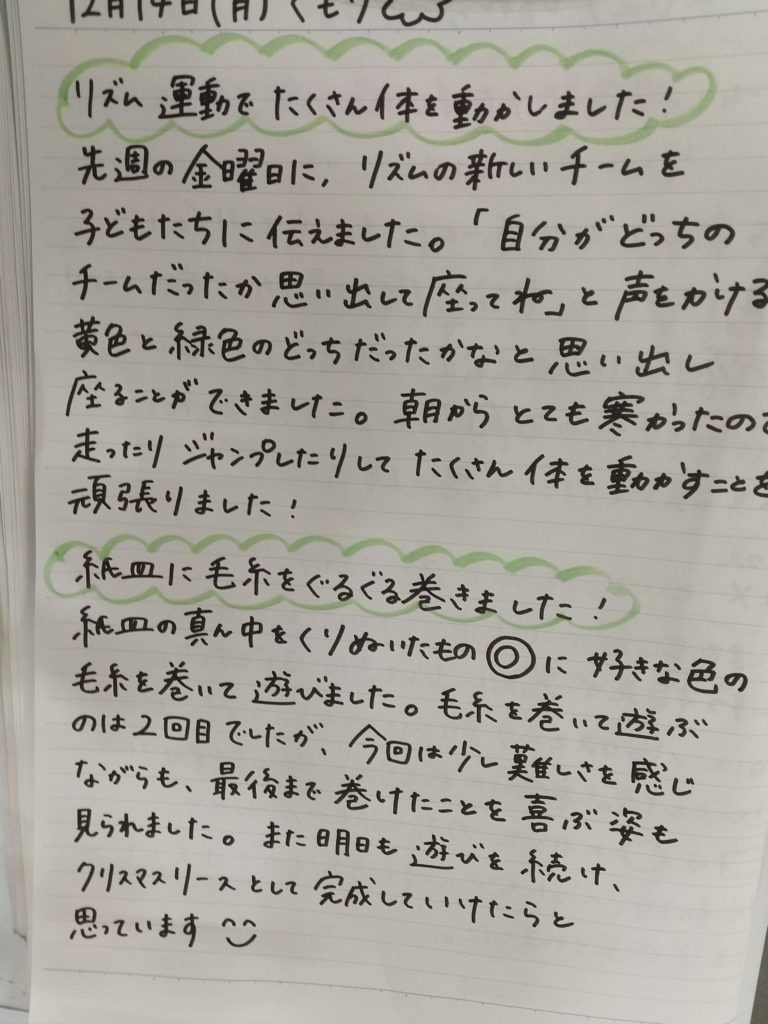 12月14日(月)くもり
リズム運動でたくさん体を動かしました!
先週の金曜日に、リズムの新しいチームを
子どもたちに伝えました。「自分がどっちの
チームだったか思い出して座ってね」と声をかける
黄色と緑色のどっちだったかなと思い出し
座ることができました。朝からとても寒かったので
走ったりジャンプしたりしてたくさん体を動かすことを
頑張りました!
紙皿に毛糸をぐるぐる巻きました!
紙皿の真ん中をくりぬいたもの◎に好きな色の
毛糸を巻いて遊びました。毛糸を巻いて遊ぶ
のは2回目でしたが、今回は少し難しさを感じ
ながらも、最後まで巻けたことを喜ぶ姿も
見られました。また明日も遊びを続け、
クリスマスリースとして完成していけたらと
思っています